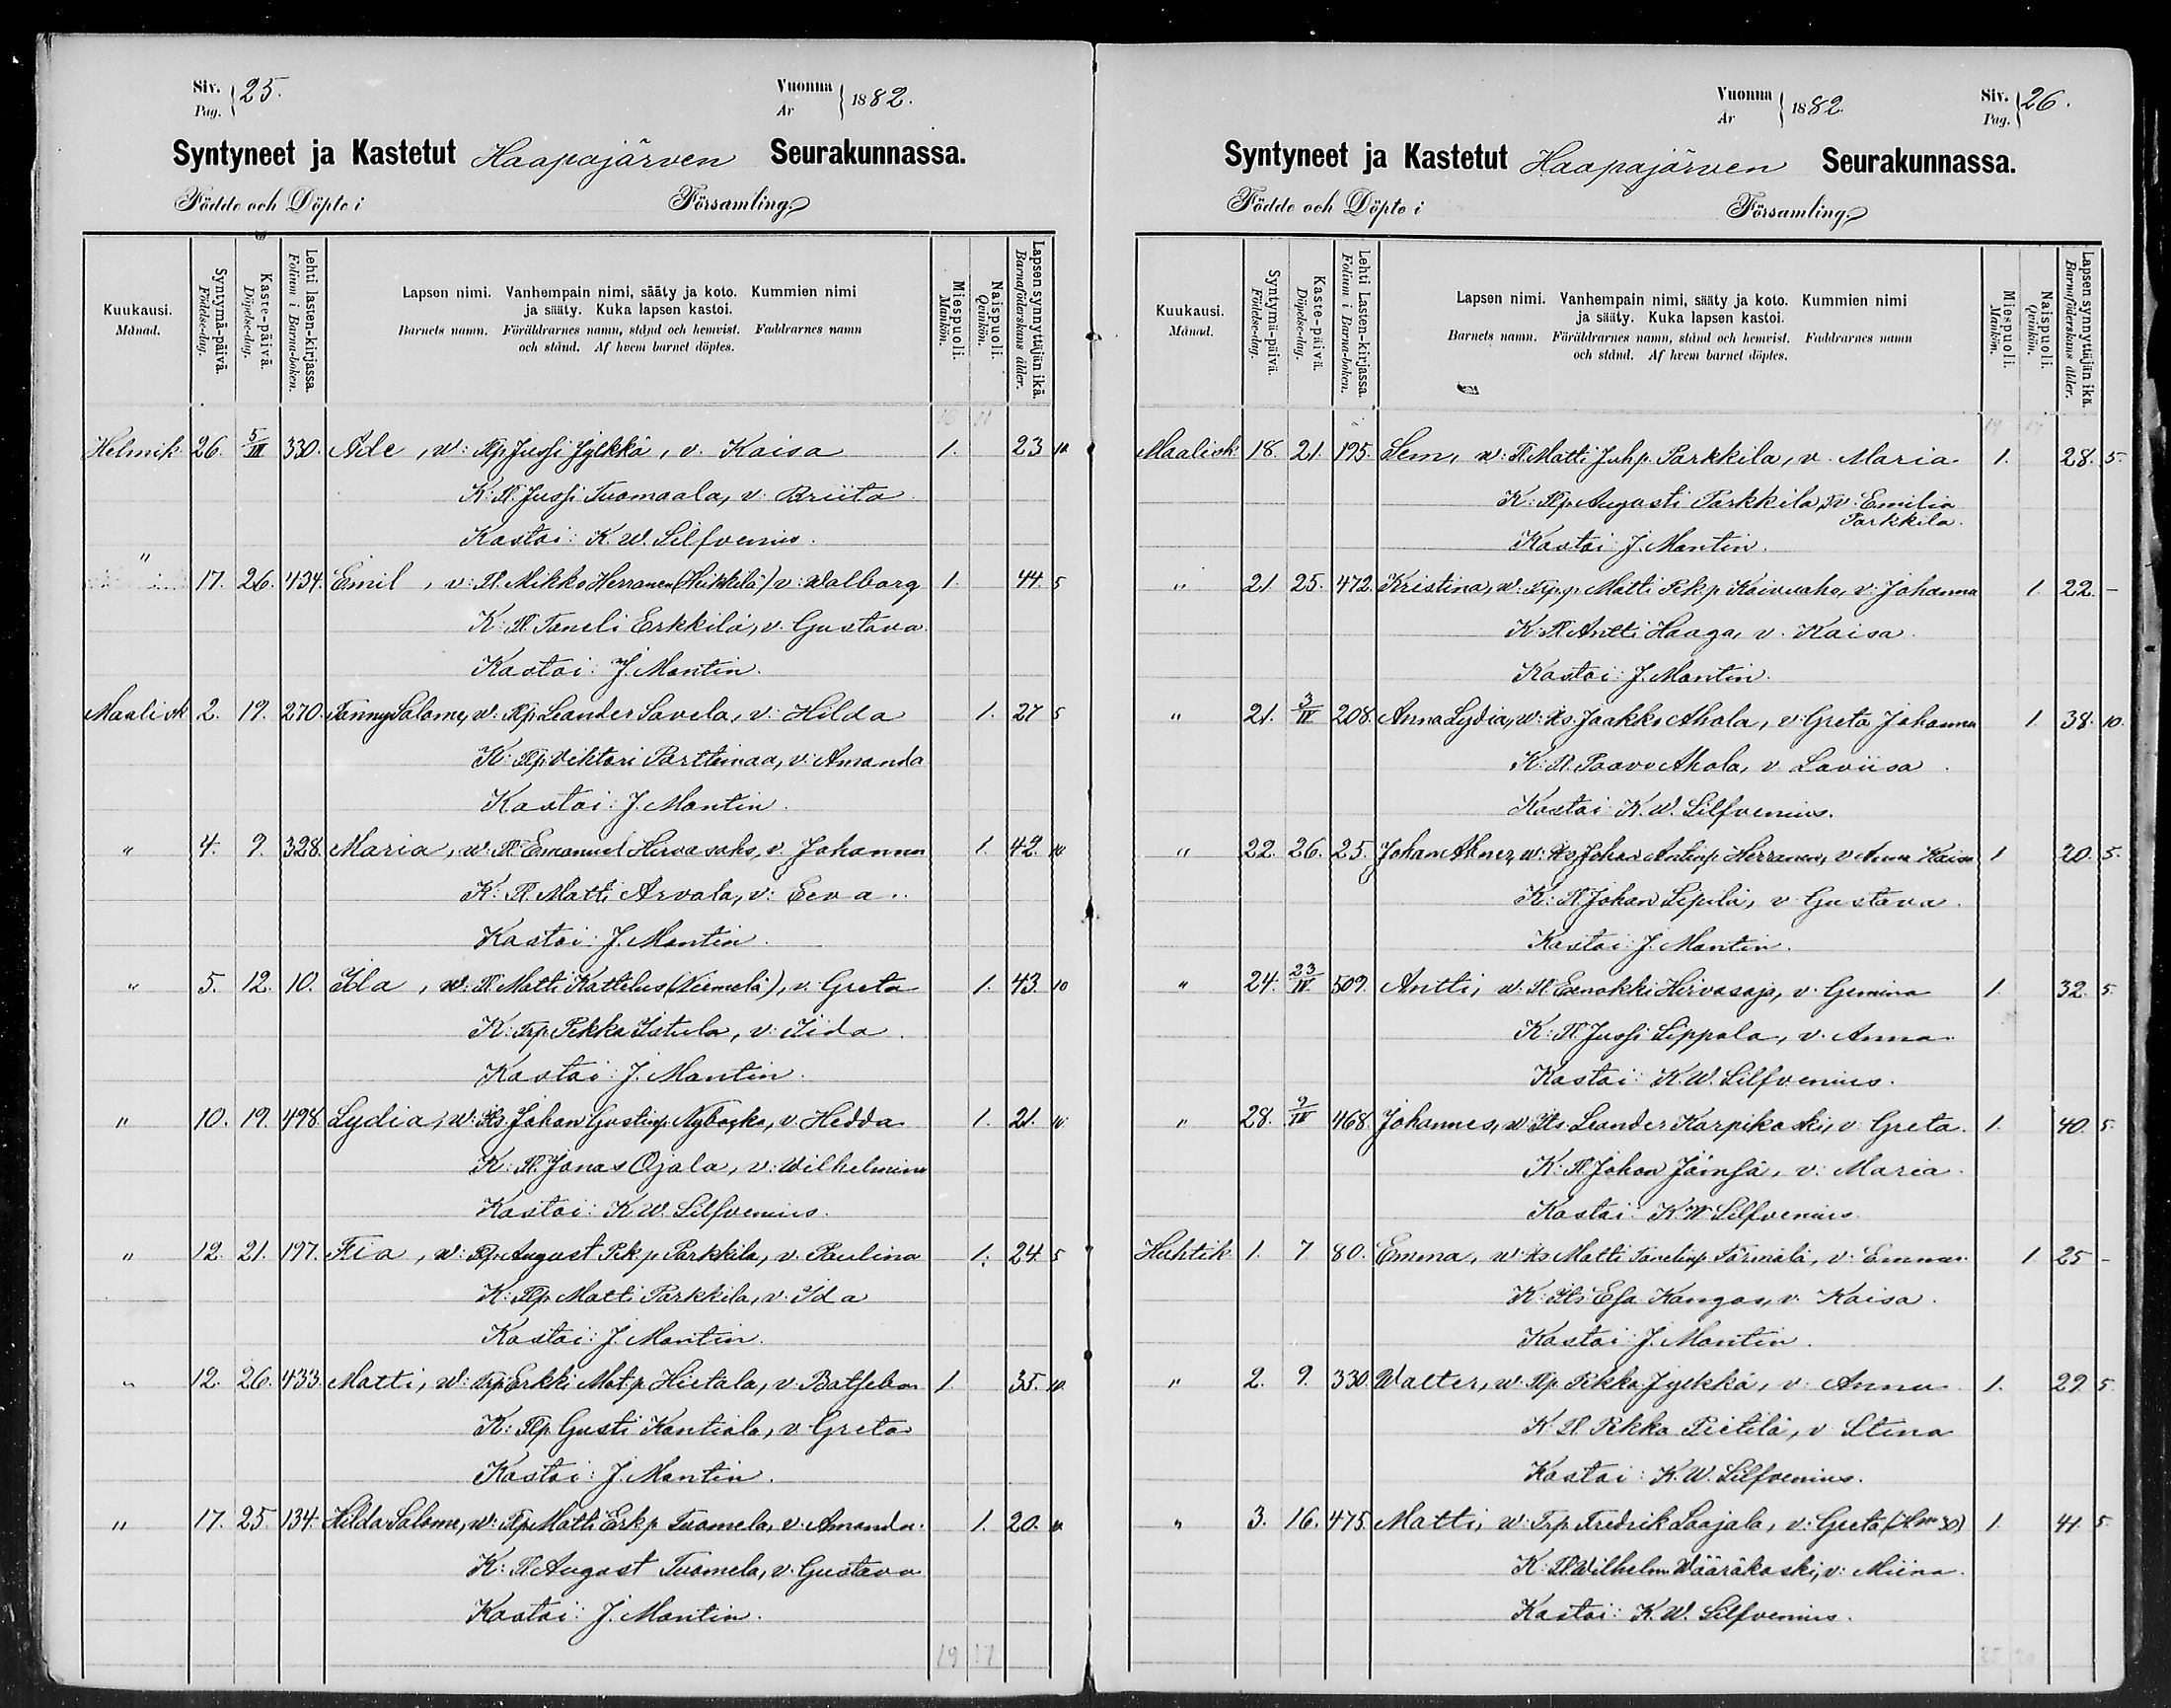 Siv. Pag. 25.
Vuonna År 1882.
Syntyneet ja Kastetut Haapajärven Seurakunnassa.
Födde och Döpte i Församling.
Kuukausi. Månad.
Syntymä-päivä. Födelse-dag.
Kaste-päivä. Döpelse-dag.
Lehti lasten-kirjassa. Folium i Barna-boken.
Lapsen nimi. Vanhempain nimi, sääty ja koto. Kummien nimi
ja sääty. Kuka lapsen kastoi.
Barnets namn. Föräldrarnes namn, stånd och hemvist. Faddrarnes namn
och stånd. Af hvem barnet döptes.
Miespuoli. Mankön.
Naispuoli. Qvinkön.
Lapsen synnyttäjän ikä. Barnaföderskans ålder.
Helmik. 26. 5/III 330. Ade, w: Tlp Jussi Jylkkä, v. Kaisa 1. 23 10
K: Tl. Jussi Tuomaala, v: Briita
Kastoi: K. W. Silfvenius.
" 17. 26. 434. Emil, v: Tl. Mikko Herranen (Heikkilä) v: Walborg 1. 44. 5
K: Tl Taneli Erkkilä, v. Gustava
Kastoi: J. Mantin.
Maalisk 2. 19. 270. Fanny Salome, w: Tlp Leander Savela, v: Hilda 1. 27 5
K: Tlp Vihtori Parttimaa, v: Amanda
Kastoi: J. Mantin.
" 4. 9. 328. Maria, w: Tl Emanuel Hirvasaho, v. Johanna 1. 42 10
K: Tl. Matti Arvola, v: Eeva.
Kastoi: J. Mantin.
" 5. 12. 10. Ida, w: Tl. Matti Kattilus (Niemelä), v. Greta 1. 43. 10
K: Trp. Pekka Istula, v: Iida
Kastoi: J. Mantin.
" 10. 19. 498 Lydia, w: Its. Johan Gustinp. Nybacka, v. Hedda 1. 21. 10
K: Tl. Jonas Ojala, v: Wilhelmina
Kastoi: K W. Silfvenius.
" 12. 21. 197. Fia, w: Tlp. August Pek p Parkkila, v. Paulina 1. 24. 5
K: Tlp. Matti Parkkila, v. Ida
Kastoi: J. Mantin.
" 12. 26. 433. Matti, w: Trp Erkki Mat p Hietala, v. Batseba 1. 35. 10.
K: Tlp Gusti Kantiola, v. Greta
Kastoi: J. Mantin.
" 17. 25. 134. Hilda Salome, w: Tlp Matti Erk p. Tuomela, v: Amanda. 1. 20.
K: Tl August Tuomela, v: Gustava
Kastoi: J. Mantin.
19 17
Vuonna År 1882.
Siv. Pag. 26.
Syntyneet ja Kastetut Haapajärven Seurakunnassa.
Födde och Döpte i Församling.
Kuukausi. Månad.
Syntymä-päivä. Födelse-dag.
Kaste-päivä. Döpelse-dag.
Lehti Lasten-kirjassa. Folium i Barna-boken.
Lapsen nimi. Vanhempain nimi, sääty ja koto. Kummien nimi
ja sääty. Kuka lapsen kastoi.
Barnets namn. Föräldrarnes namn, stånd och hemvist. Faddrarnes namn
och stånd. Af hvem barnet döptes.
Miespuoli. Mankön.
Naispuoli. Qvinkön.
Lapsen synnyttäjän ikä. Barnaföderskans ålder.
19 17
Maalisk. 18. 21. 195. Sem, w: Tl. Matti Juh p. Parkkila, v. Maria 1. 28. 5.
K: Tlp. Augusti Parkkila, v: Emilia
Parkkila.
Kastoi J. Mantin.
" 21 25. 472. Kristina, w: Matti Pek p. Koivuaho, v: Johanna 1 22. -
K: Tl Antti Haaga, v. Kaisa.
Kastoi: J. Mantin.
" 21. 3/IV 208. Anna Lydia, w: Its. Jaakko Ahola, v: Greta Johanna 1 38. 10.
K: Tl. Paavo Ahola, v Loviisa.
Kastoi K. W. Silfvenius.
" 22. 26. 25. Johan Abner, w: Its Johan Antinp. Herranen, v Anna Kaisa 1 20. 5.
K: Tl Johan Sipilä, v Gustava.
Kastoi: J. Mantin.
" 24. 23/IV. 509. Antti, w: Tl Eenokki Hirvasoja, v. Gemina 1. 32. 5.
K: Tl Jussi Sippola, v. Anna.
Kastoi: K. W. Silfvenius.
" 28. 9/IV 468. Johannes, w: Its Leander Karpikoski, v Greta. 1. 40. 5.
K: Tl Johan Jämsä, v: Maria.
Kastoi: K W Silfvenius.
Huhtik 1. 7 80. Emma, w: Its Matti Tanelinp Törmälä, v: Emma. 1 25 -
K: Its Esa Kangas, v. Kaisa.
Kastoi: J. Mantin.
" 2. 9. 330. Walter, w: Tlp Pekka Jylkkä, v: Anna 1. 29 5
K Tl Pekka Pietilä, v Stina
Kastoi: K. W. Silfvenius.
" 3. 16. 475. Matti, w: Trp. Fredrik Laajala, v: Greta 1. 41. 5.
K: Tl. Wilhelm Wääräkoski, v: Miina.
Kastoi: K. W. Silfvenius.